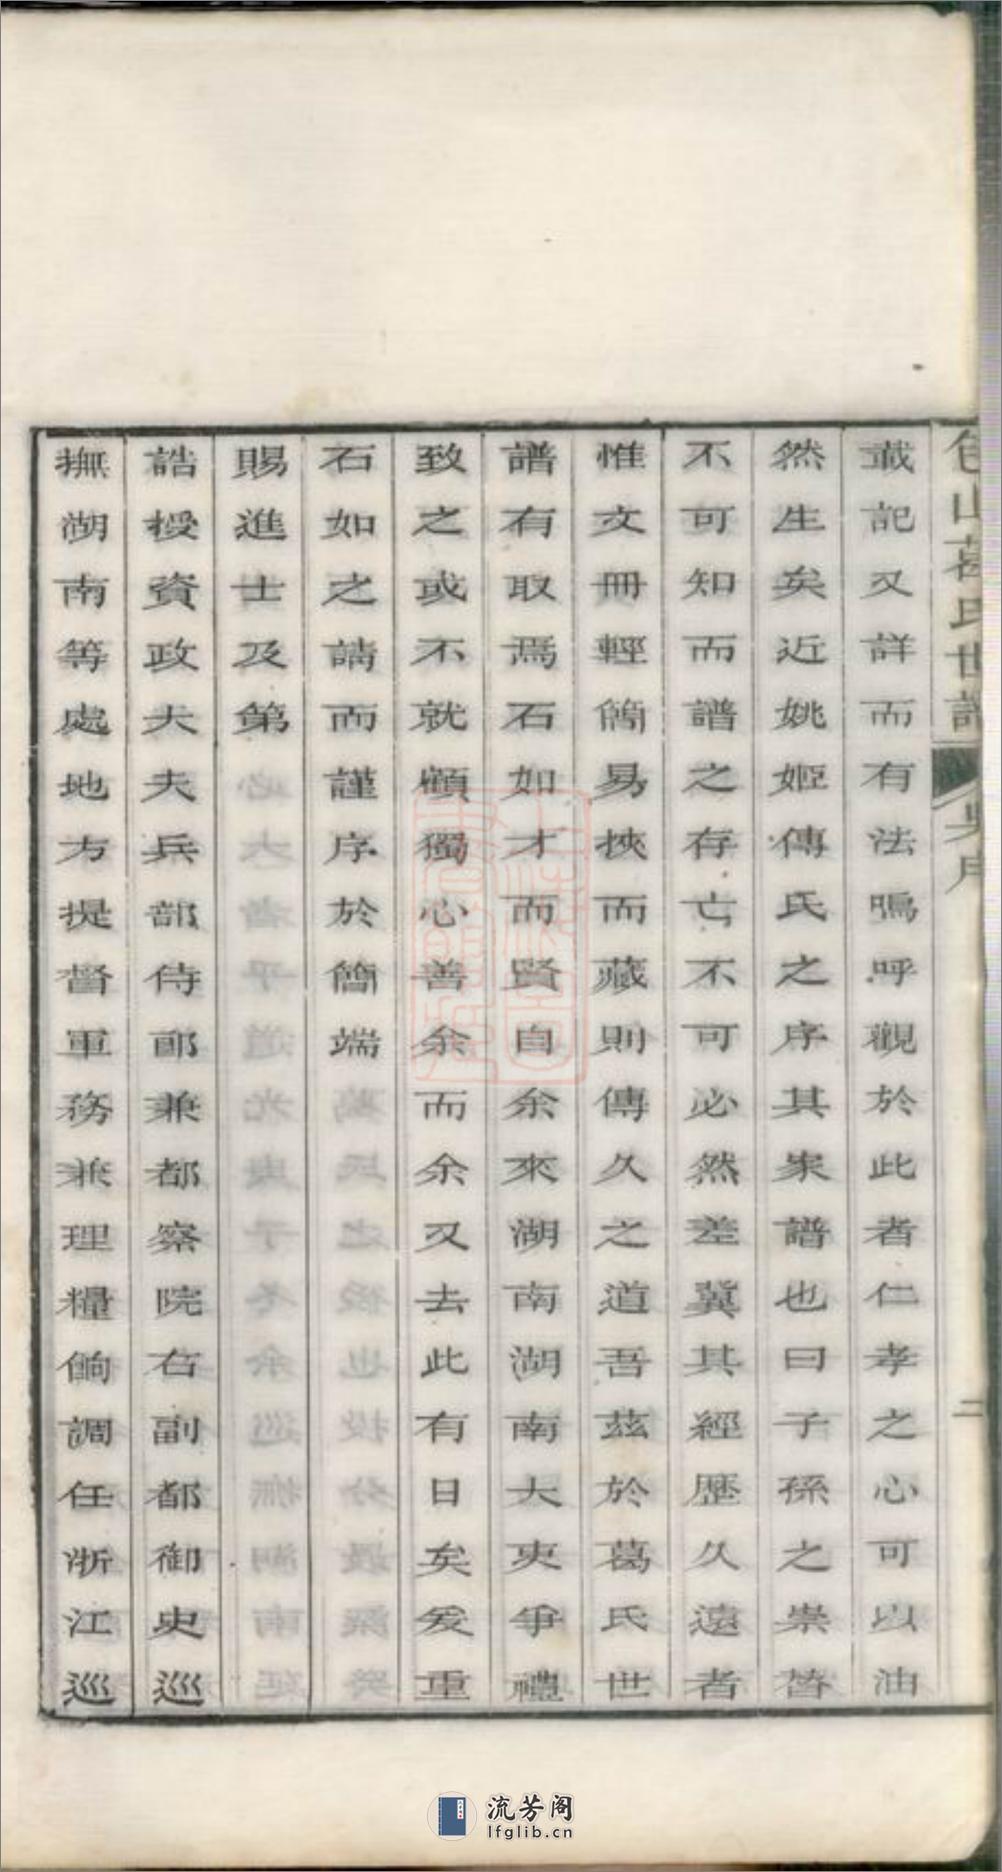 蕆記又詳而有法鳴呼觀於此者仁孝之心可以油
然生矣近姚姬傳氏之序其家譜也曰子孫之崇替
不可知而譜之存亡不可必然差冀其經歷久遠者
惟文冊輕簡易挾而藏則傳久之道吾茲於葛氏世
譜有取焉石如才而賢自余來湖南湖南大吏爭禮
致之或不就顧獨心善余而余又去此有日矣爰重
石如之請而謹序於簡端
賜進士及第
誥授資政大夫兵部侍郎兼都察院右副都御史巡
撫湖南等處地方提督軍務兼理糧餉調任浙江巡
山葛氏世譜
吳序
二
流芳阁
lfglib.cn